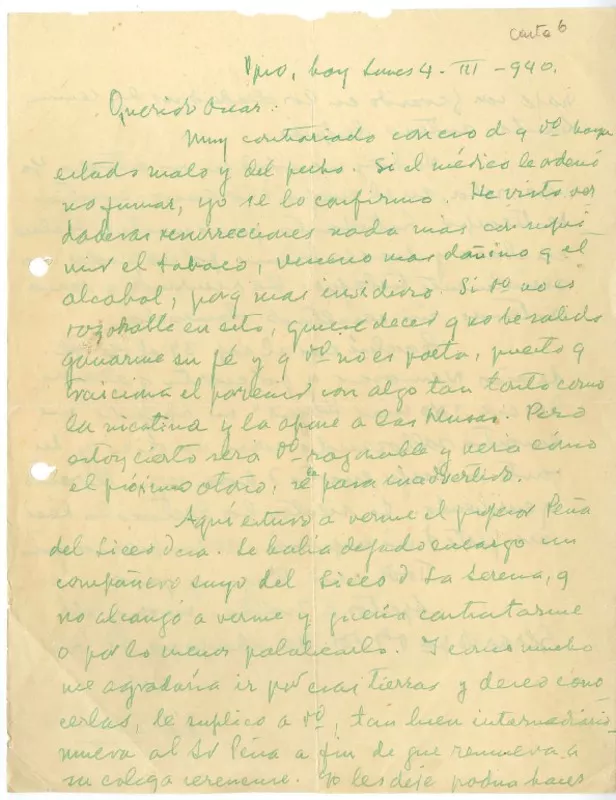 Carta 6
Vpso, hoy Lunes 4 - III - 940.
Querido Oscar:
Muy contrariado conozco d q Vd haya
estado malo y del pecho. Si el médico le ordenó
no fumar, yo se lo confirmo. He visto ver
daderas resurrecciones nada más con supri
mir el tabaco, veneno mas dañino q el
alcohol, porq mas insidioso. Si Vd no es
razonable en esto, quiere decir q no he sabido
ganarme su fé y q Vd no es poeta, puesto q
traiciona el porvenir con algo tan tonto como
la nicotina y la opone a las Musas. Pero
estoy cierto será Vd razonable y verá cómo
el próximo otoño, se le pasa inadvertido.
Aquí estuvo a verme el profesor Peña
del Liceo d esa. Le había dejado encargo un
compañero suyo del Liceo d La Serena, q
no alcanzó a verme y quería contratarme
o por lo menos palabearlo. Y como mucho
me agradaría ir por esas tierras y deseo cono
cerlas, le suplico a Vd, tan buen intermediario,
mueva al Sr Peña a fin de que remueva a
su colega serenense. Yo les dejé podría hacer